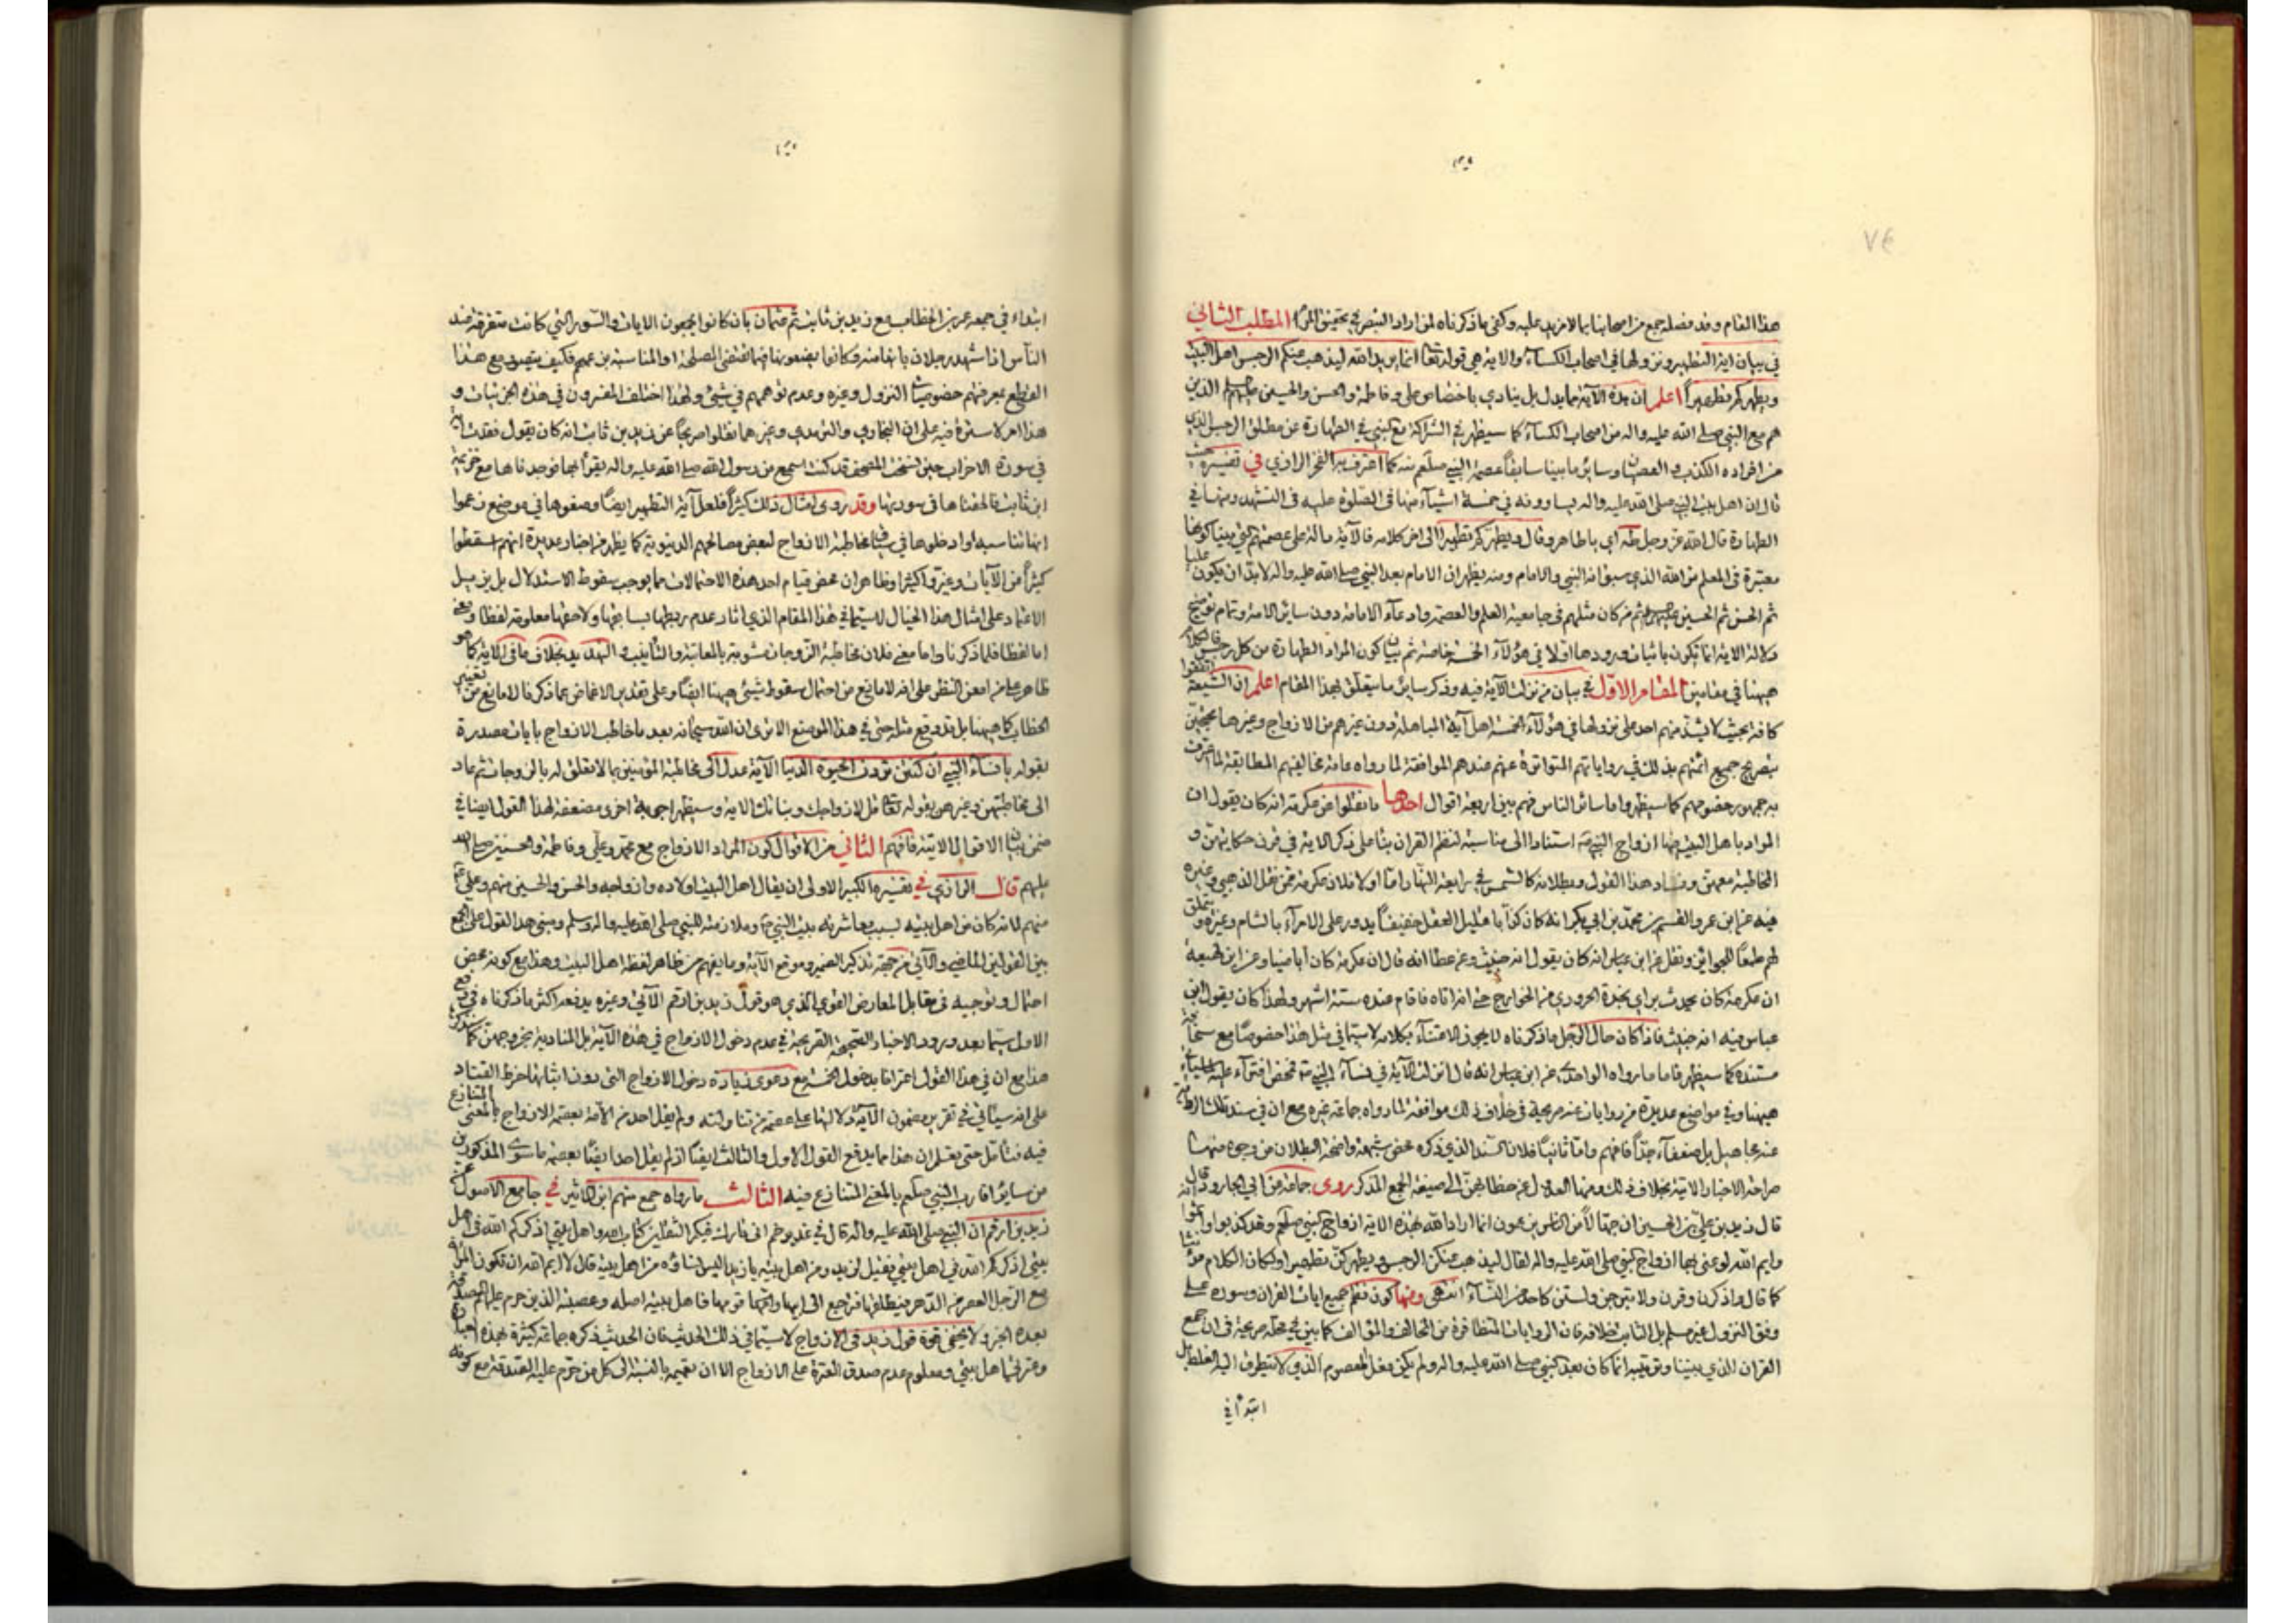 هذا المقام وقد فصله جمع من اصحابنا بما لا مزيد عليه وكفى ما ذكرناه لمن اراد التبصر في تحقيق المرام المطلب الثاني
في بيان اية التطهير ونزولها في اصحاب الكساء والاية هي قوله تعالى انما يريد الله ليذهب عنكم الرجس اهل البيت
ويطهركم تطهيراً اعلم ان هذه الآية مما يدل بل ينادي باختصاص علي وفاطمة والحسن والحسين الذين
هم مع النبي صلى الله عليه واله من اصحاب الكساء كما سيظهر في الشراكة مع النبي في الطهارة عن مطلق الرجس الذي
من افراده الكذب و العصيان وسائر ما بينا سابقاً عصمة النبي صلعم منه كما اعترف به الفخر الرازي في تفسيره حيث
قال ان اهل بيت النبي صلى الله عليه واله يساوونه في خمسة اشياء منها في الصلوة عليه في التشهد ومنها في
الطهارة قال الله عز وجل طه اي يا طاهر وقال ويطهركم تطهيرا الى اخر كلامه فالآية دالة على عصمتهم التي بينا كونها
معتبرة في المعلم من الله الذي سبق انه النبي والامام ومنه يظهر ان الامام بعد النبي صلى الله عليه واله لابد ان يكون علياً
ثم الحسن ثم الحسين ثم من كان مثلهم في جامعية العلم والعصمة وادعاء الامامة دون سائر الامة وتمام توضيح
دلالة الاية انما تكون باثبات ورودها اولا في هؤلاء الخمسة خاصة ثم بيان كون المراد الطهارة من كل رجس فالكلام
ههنا في مقامين المقام الاول في بيان من نزلت الآية فيه وذكر سائر ما يتعلق بهذا المقام اعلم ان الشيعة اتفقوا
كافة بحيث لا يشذ منهم احد على نزولها في هؤلاء الخمسة اهل آية المباهلة دون غيرهم من الازواج وغيرها محتجين
بتصريح جميع ائمتهم بذلك في رواياتهم المتواترة عنهم عندهم الموافقة لما رواه عامة مخالفيهم المطابقة لما اعترف
به جمهور خصومهم كما سيظهر واما سائر الناس فهم بين اربعة اقوال احدها ما نقلوا عن عكرمة انه كان يقول ان
المراد باهل البيت فيها ازواج النبي استنادا الى مناسبة لنظم القران بناً على ذكر الاية في قرن حكايتهن و
المخاطبة معهن وفساد هذا القول وبطلانه كالشمس في رابعة النهار اما اولا فلان عكرمة ممن نقل الذهبي وغيره
فيه عن ابن عمر والقسم بن محمد بن ابي بكر انه كان كذابا قليل العقل خفيفاً يدور على الامراء بالشام وغيره ويتملق
لهم طمعاً للجوائز ونقل عن ابن عباس انه كان يقول انه خبيث وعن عطا انه قال ان عكرمة كان اباضيا وعن ابن لهيعة
ان عكرمة كان يحدث براي نجدة الحروري من الخوارج حتى انه اتاه فاقام عنده ستة اشهر ولهذا كان يقول ابن
عباس فيه انه خبيث فاذا كان حال الرجل ما ذكرناه لا يجوز الاعتناء بكلامه لا سيما في مثل هذا خصوصاً مع
مستنده كما سيظهر فاما ما رواه الواحدي عن ابن عباس انه قال انزلت الآية في نساء النبي فمحض افتراء عليه
ههنا وفي مواضع عديدة من روايات عنه صريحة في خلاف ذلك موافقة لما رواه جماعة غيره مع ان في سند تلك الرواية
عنه مجاهيل بل ضعفاء جداً فافهم واما ثانياً فلان السند الذي ذكره محض شبهة واضحة البطلان من وجوه منها
صراحة الاخبار الاتية بخلاف ذلك ومنها العدول عن خطابهن الى صيغة الجمع المذكر روى جماعة عن ابي الجارود قال
قال زيد بن علي بن الحسين ان جهالاً من الناس يزعمون انما اراد الله بهذه الاية ازواج النبي صلعم وقد كذبوا واثموا
وايم الله لو عنى بها ازواج النبي صلى الله عليه واله لقال ليذهب عنكن الرجس ويطهركن تطهيرا ولكان الكلام مؤنثا
كما قال واذكرن وقرن ولا تبرجن ولستن كاحد من النساء انتهى ومنها كون نظم جميع ايات القران وسوره على
وفق النزول غير مسلم بل الثابت خلافه فان الروايات المتظافرة من المخالف والمؤالف كما بين في محله صريحة في ان جمع
القران الذي بيننا وترتيبه انما كان بعد النبي صلى الله عليه واله ولم يكن بفعل المعصوم الذي لا يتطرق اليه الغلط بل
ابتداء في
ابتداء في جمعه عمر بن الخطاب مع زيد بن ثابت ثم عثمان بان كانوا يجمعون الايات والسور التي كانت متفرقة عند
الناس اذا شهد رجلان بانها منه وكانوا يضعونها فيما تقتضي المصلحة او المناسبة بزعمهم فكيف يتصور مع هذا
القطع بمعرفتهم خصوصيات النزول وغيره وعدم توهمهم في شيء ولهذا اختلف المفسرون في هذه الجزئيات و
هذا امر لا سترة فيه على ان البخاري والترمذي وغيرهما نقلوا صريحاً عن زيد بن ثابت انه كان يقول فقدت اية
في سورة الاحزاب حين نسخت المصحف قد كنت اسمع من رسول الله صلى الله عليه واله يقرأ بها فوجدناها مع خزيمة
ابن ثابت فالحقناها في سورتها وقد روى امثال ذلك كثيراً فلعل آية التطهير ايضاً وضعوها في موضع زعموا
انها تناسبه او ادخلوها في سياق مخاطبة الازواج لبعض مصالحهم الدنيوية كما يظهر من اخبار عديدة انهم اسقطوا
كثيراً من الآيات وغيروا كثيرا وظاهر ان محض قيام احد هذه الاحتمالات مما يوجب سقوط الاستدلال بل يزيل
الاعتماد على امثال هذا الخيال لا سيما في هذا المقام الذي اثار عدم ربطها بسابقها ولاحقها معلومة لفظا ومعنى
اما لفظا فلما ذكرنا واما معنى فلان مخاطبة الزوجات مشوبة بالمعاتبة والتأنيب و التهديد بخلاف ما في الاية كما هو
ظاهر على من امعن النظر على انه لا مانع من احتمال سقوط شيء ههنا ايضاً وعلى تقدير الاغماض عما ذكر فلا مانع من تغيير
الخطاب كما ههنا بل قد وقع مثله حتى في هذا الموضع الا ترى ان الله سبحانه بعد ما خاطب الازواج بايات مصدرة
بقوله يا نساء النبي ان كنتن تردن الحيوة الدنيا الآية عدل الى مخاطبة المؤمنين بما لا تعلق له بالزوجات ثم عاد
الى مخاطبتهن وغيرهن بقوله تعالى قل لازواجك وبناتك الاية وسيظهر اجوبة اخرى مضعفة لهذا القول ايضا في
ضمن بيان الاقوال الاتية فافهم الثاني من الاقوال كون المراد الازواج مع محمد وعلي وفاطمة والحسنين صلى الله
عليهم قال الرازي في تفسيره الكبير الاولى ان يقال اهل البيت اولاده وازواجه والحسن والحسين منهم وعلي
منهم لانه كان من اهل بيته بسبب معاشرته ببيت النبي وملازمته للنبي صلى الله عليه واله وسلم ومبنى هذا القول على الجمع
بين القولين الماضي والآتي من جهة تذكير الضمير وموقع الآية وما يفهم من ظاهر لفظ اهل البيت وهذا مع كونه محض
احتمال وتوجيه في مقابل المعارض القوي الذي هو قول زيد بن ارقم الآتي وغيره يدفعه اكثر ما ذكرناه في دفع
الاول سيما بعد ورود الاخبار الصحيحة الصريحة في عدم دخول الازواج في هذه الآية بل المنادية بخروجهن كما سنذكر
هذا مع ان في هذا القول اعترافا بدخول الخمسة مع دعوى زيادة دخول الازواج التي دون اثباتها خرط القتاد
على انه سيأتي في تقرير مضمون الآية دلالتها على عصمة من تناولته ولم يقل احد من الامة بعصمة الازواج بالمعنى المتنازع
فيه فتأمل حتى تعلم ان هذا مما يدفع القول الاول والثالث ايضاً اذ لم يقل احد ايضاً بعصمة ما سوى المذكورين
من سائر اقارب النبي صلعم بالمعنى المتنازع فيه الثالث ما رواه جمع منهم ابن الاثير في جامع الاصول عن
زيد بن ارقم ان النبي صلى الله عليه واله قال في غدير خم اني تارك فيكم الثقلين كتاب الله واهل بيتي اذكركم الله في اهل
بيتي اذكركم الله في اهل بيتي فقيل لزيد ومن اهل بيته يا زيد اليس نساؤه من اهل بيته قال لا ايم الله ان تكون المرأة
مع الرجل العصر من الدهر فيطلقها فترجع الى ابيها وامها قومها فاهل بيته اصله وعصبته الذين حرم عليهم الصدقة
بعده الخبر ولا يخفى قوة قول زيد في الازواج لا سيما في ذلك الحديث فان الحديث ذكره جماعة كثيرة بهذه
وعترتي اهل بيتي ومعلوم عدم صدق العترة على الازواج الا ان تعميمه بالنسبة الى كل من حرم عليه الصدقة مع كونه